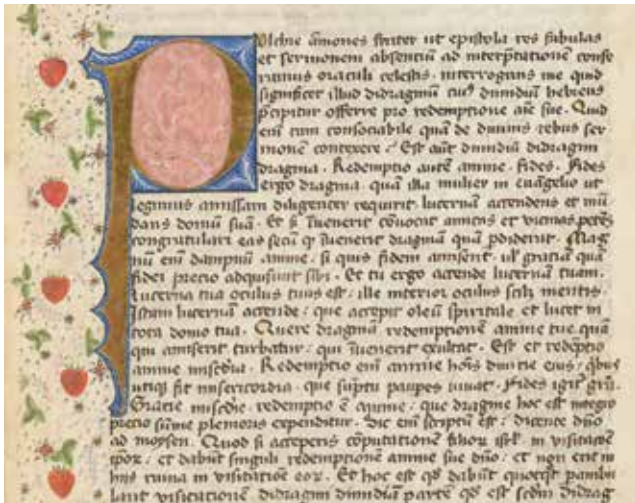 Pulchre āmones frater ut epistola res fabulas
et sermonem absentiū ad interp̄tationē confe
ramus oraculi celestis · interrogans me quid
significet illud didragmū cuiꝰ dimidiū hebreus
p̄cipitur offerre pro redemptione aīe sue · Quid
eīn tam consociabile quā de diuinis rebus ser
monē contexere · Est aūt dimidiū didragm
dragma · Redemptio autē anime · fides · Fides
ergo dragma quā illa mulier in euāgelio ut
legimus amissam diligenter requirit · lucernā accendens et mū
dans domū suā · Et si īuenerit cōuocat amicas et vicinas petēs
congratulari eas secū qꝫ īuenerit dragmā quā p̄diderat · Mag
nū eīn dampnū anime · si quis fidem amiserit · ul̓ gratiā quā
fidei precio adquisiuit sibi · Et tu ergo accende lucernā tuam ·
Lucerna tua oculus tuus est · ille interior oculus scilꝫ mentis ·
Istam lucernā accende · que accepit oleū spirituale et lucet in
tota domo tua · Quere dragmā redemptionē anime tue quā
qui amiserit turbatur · qui īuenerit exultat · Est et redēptio
anime misc̄dia · Redemptio eīn anime hoīs diuitie eius · q̄bus
utiqꝫ fit misericordia · que sūptu paupes iuuat · Fides igit̄ grā ·
Gratie misc̄die · redemptio ē anime · que dragme hoc est integro
precio sūme plemoris expenditur · Sic eīn scriptū est · dicente dn̄o
ad moysen · Quod si acceperis cōputationē filiorꝫ isrl̓ · in visitatōē
ip̄orꝫ · et dabūt singuli redemptionē anime sue dn̄o · et non erit in
hiis ruina in visitatiōe eorꝫ · Et hoc est qd̓ dabūt quotqt̓ pambu
lant visitationē didragm dimidiā partē qd̓ est scdm̄ didrag